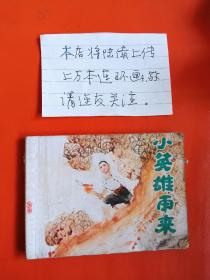 本店将陆续上传
上万本连环画,敬
请连友关注。
小英雄雨来